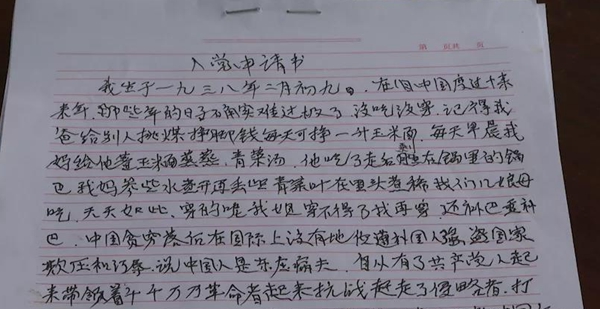 第 页共 页
入党申请书
我生于一九三八年二月初九。在旧中国度过十来
来年，那些年的日子确实难过极了，没吃没穿，记得我
爸给别人挑煤挣脚钱每天可挣一升玉米面，每天早晨我
妈给他蒸玉米面蒸蒸，青菜汤，他吃了走后剩在锅里的锅
巴我妈参些水煮开再丢些青菜叶在里头煮稀我们几娘母
吃，天天如此，穿的呢我姐穿不得了我再穿，还补巴重补
巴，中国贫穷落后在国际上没有地位遭外国人强盗国家
欺压和污辱，说中国人是东亚病夫，自从有了共产党人起
来带领着千千万万革命者起来抗战赶走了侵略者，打